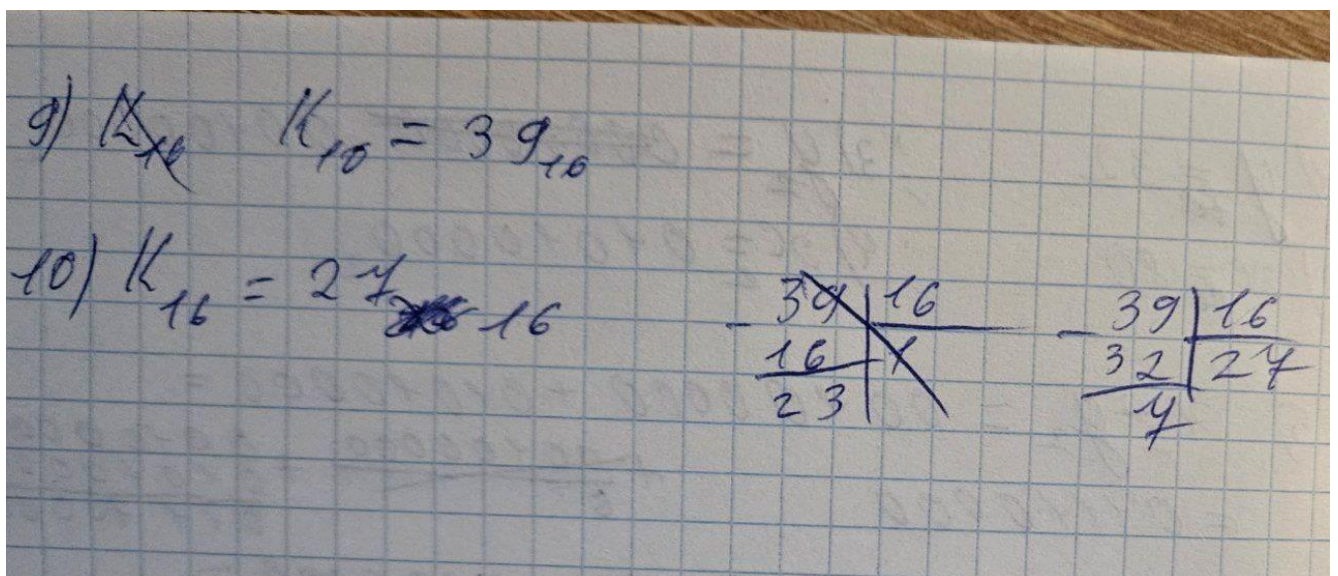 9) K₁₀ = 39₁₀
10) K₁₆ = 27 16
39 | 16
16 | 1
23
39 | 16
32 | 27
7